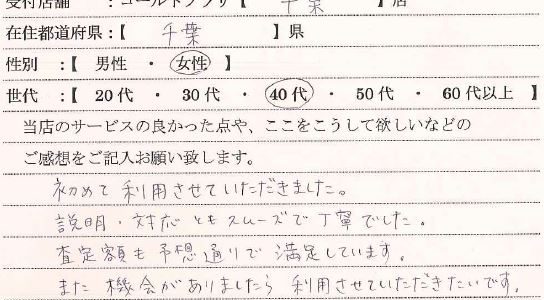 受付店舗 ：ゴールドプラザ【 千葉 】店
在住都道府県：【 千葉 】県
性別 ：【 男性 ・ 女性 】
世代 ：【 20代 ・ 30代 ・ 40代 ・ 50代 ・ 60代以上 】
当店のサービスの良かった点や、ここをこうして欲しいなどの
ご感想をご記入お願い致します。
初めて利用させていただきました。
説明・対応ともスムーズで丁寧でした。
査定額も予想通りで満足しています。
また機会がありましたら利用させていただきたいです。